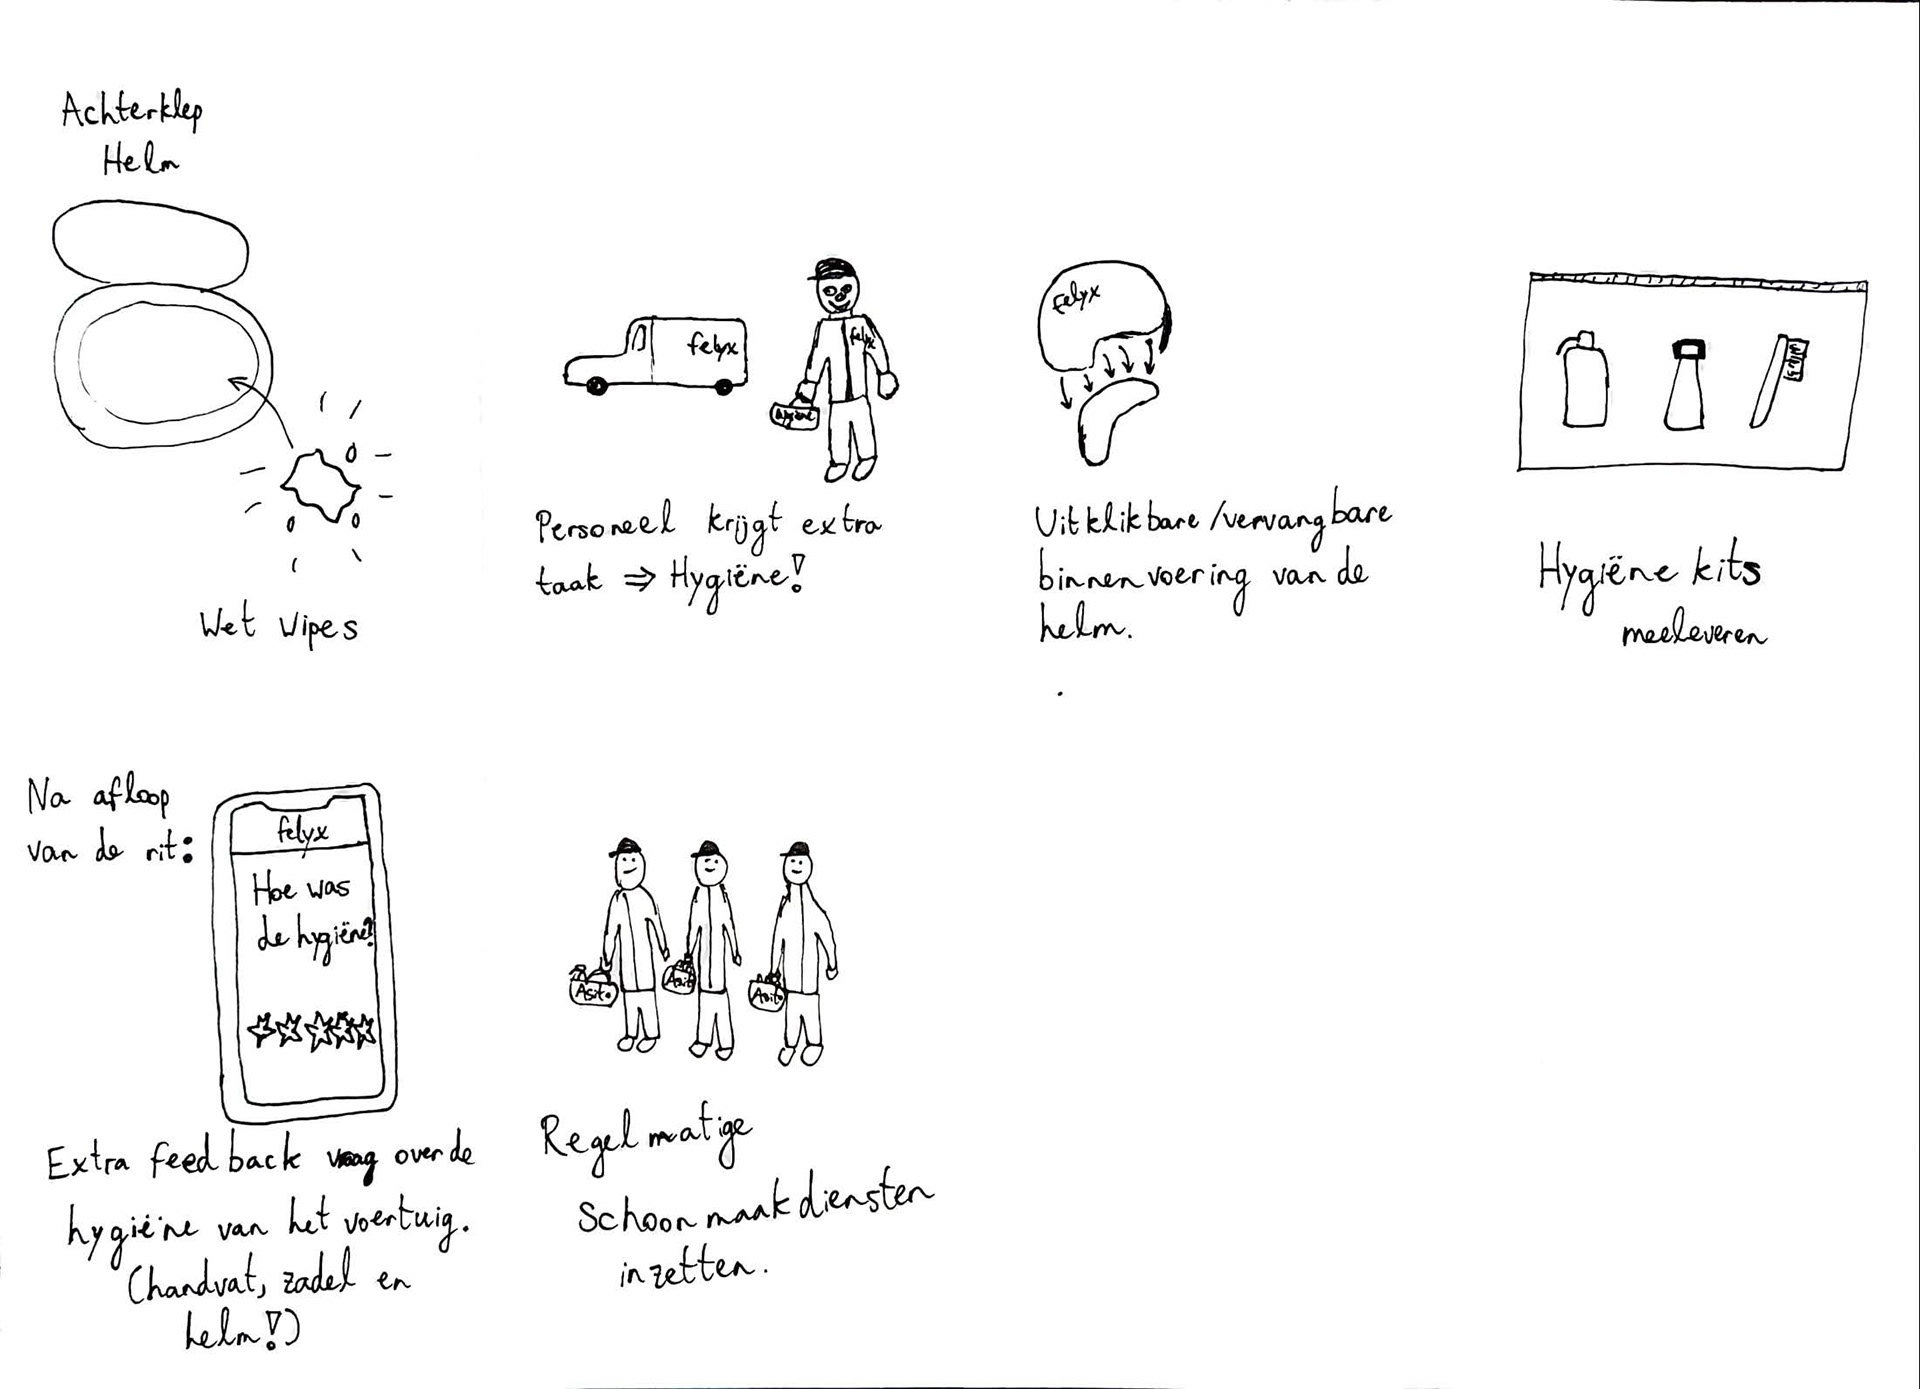 Achterklep
Helm
Wet wipes
felyx
felyx
hygiëne
Personeel krijgt extra
taak ⇒ Hygiëne!
felyx
Uitklikbare/vervangbare
binnenvoering van de
helm.
Hygiëne kits
meeleveren
Na afloop
van de rit:
felyx
Hoe was
de hygiëne?
Extra feedback vraag over de
hygiëne van het voertuig.
(handvat, zadel en
helm!)
Asito
Asito
Asito
Regelmatige
Schoonmaakdiensten
inzetten.